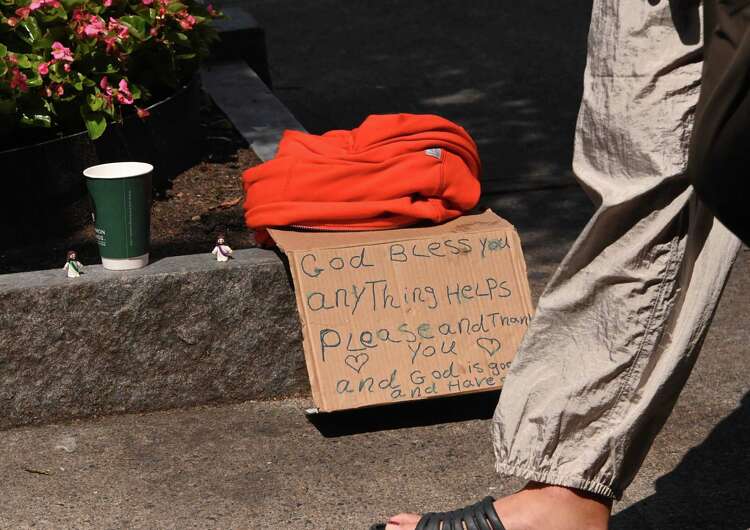 God Bless you
anyThing HeLPs
PLease and Than
you
and God is goo
and Have